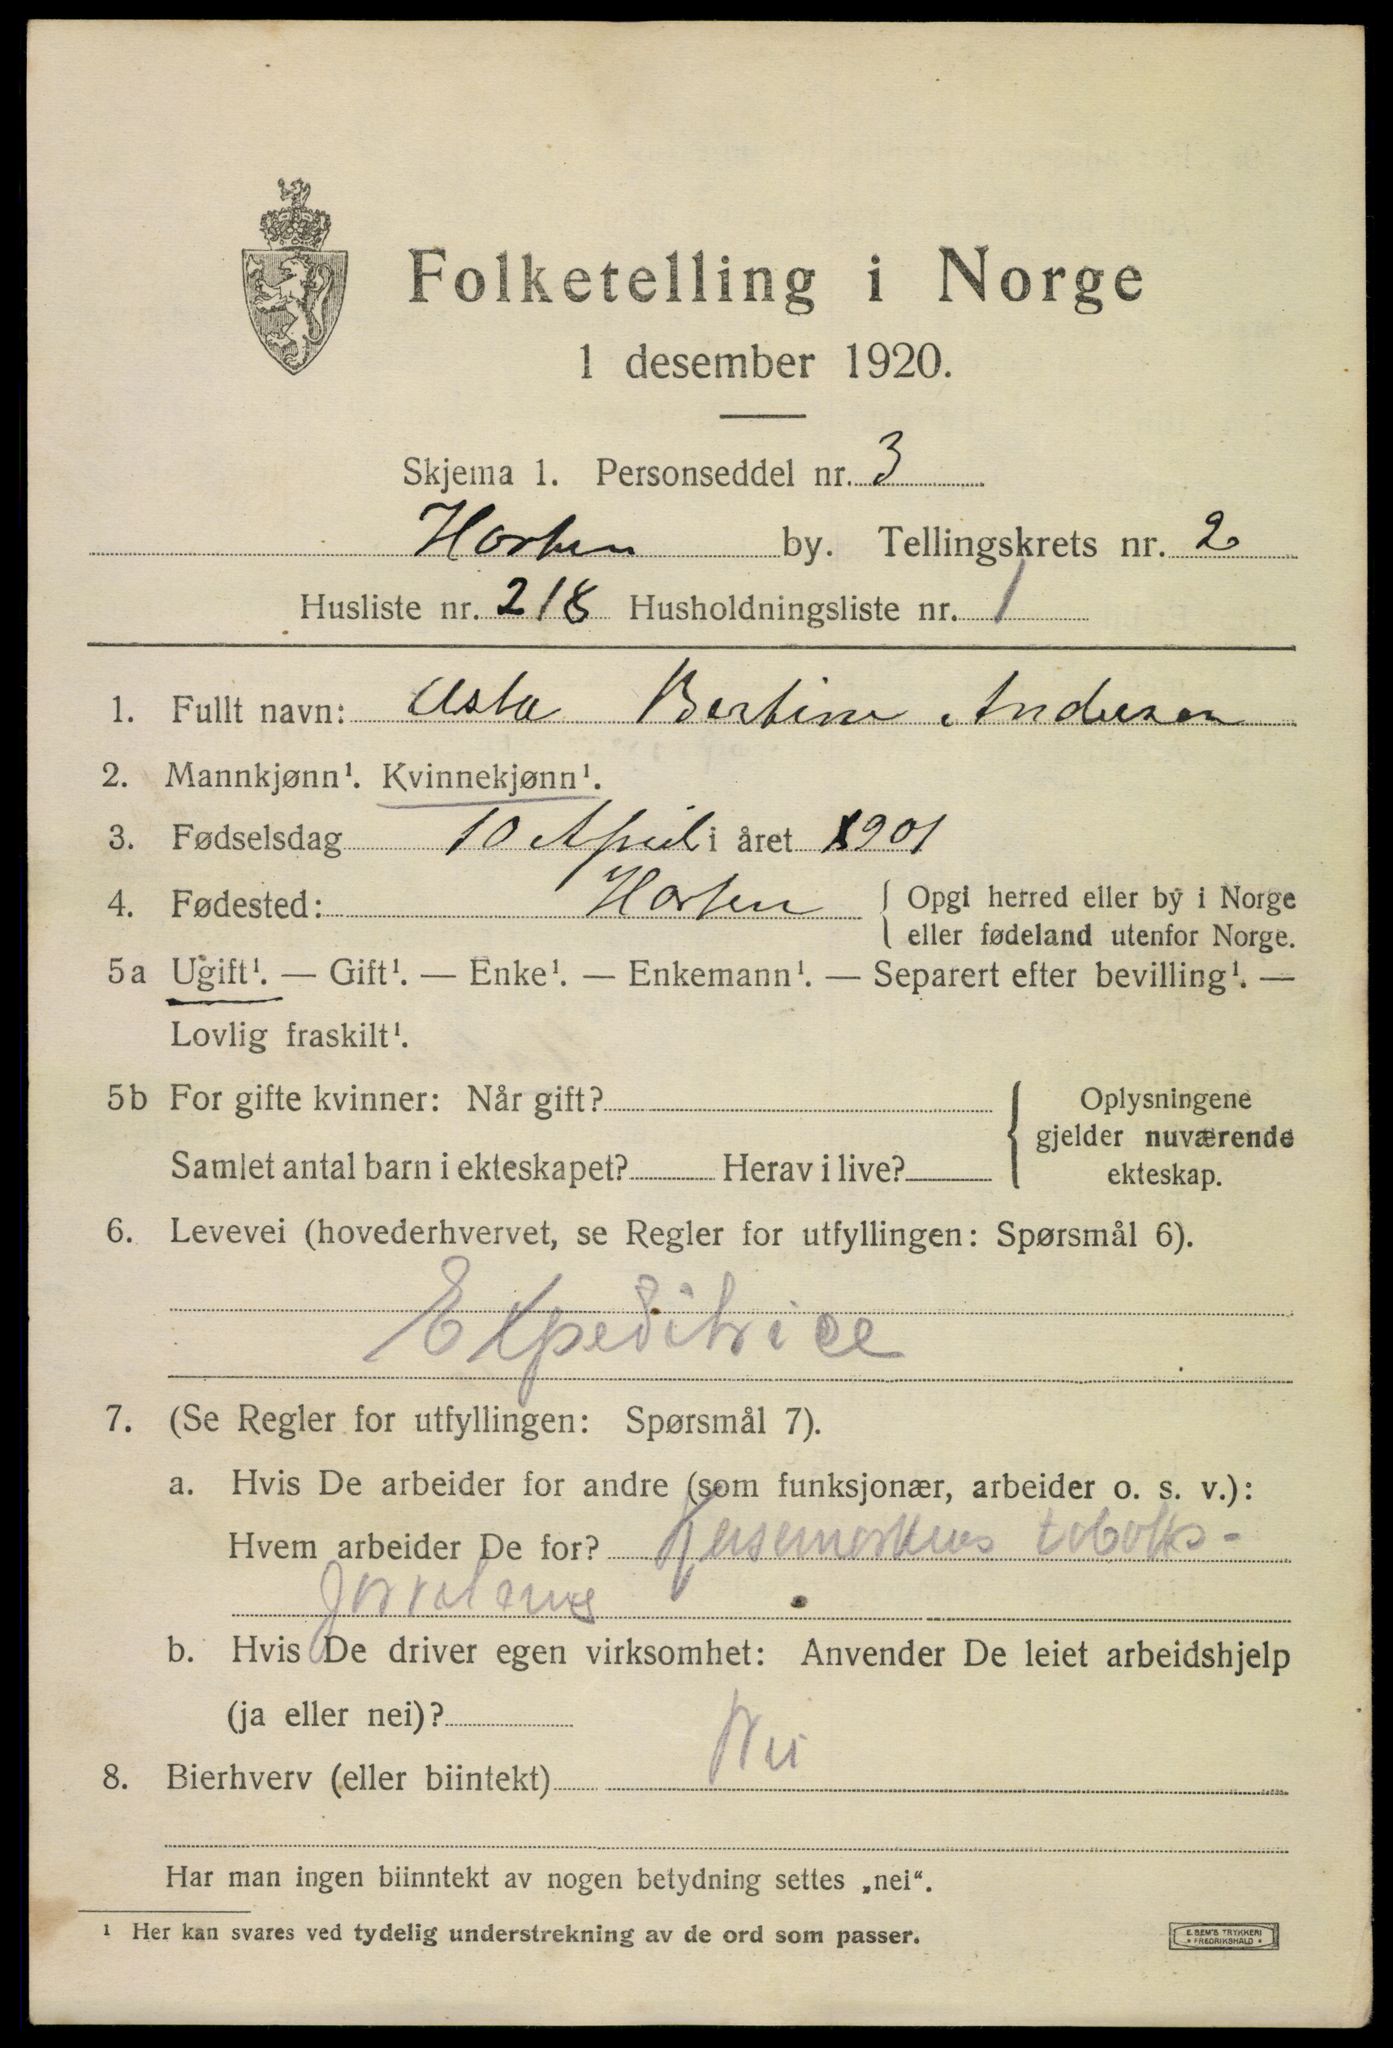 Folketelling i Norge
1 desember 1920.
Skjema 1. Personseddel nr. 3
Horten by. Tellingskrets nr. 2
Husliste nr. 218 Husholdningsliste nr. 1
1. Fullt navn: Asta Bertine Andersen
2. Mannkjønn¹. Kvinnekjønn¹.
3. Fødselsdag 10 April i året 1901
4. Fødested: Horten { Opgi herred eller by i Norge
eller fødeland utenfor Norge.
5a Ugift¹. — Gift¹. — Enke¹. — Enkemann¹. — Separert efter bevilling¹. —
Lovlig fraskilt¹.
5b For gifte kvinner: Når gift? { Oplysningene
gjelder nuværende
Samlet antal barn i ekteskapet? Herav i live? ekteskap.
6. Levevei (hovederhvervet, se Regler for utfyllingen: Spørsmål 6).
Expeditrice
7. (Se Regler for utfyllingen: Spørsmål 7).
a. Hvis De arbeider for andre (som funksjonær, arbeider o. s. v.):
Hvem arbeider De for? tobaks-
b. Hvis De driver egen virksomhet: Anvender De leiet arbeidshjelp
(ja eller nei)?
8. Bierhverv (eller biintekt) Nei
Har man ingen biinntekt av nogen betydning settes „nei".
¹ Her kan svares ved tydelig understrekning av de ord som passer.
E. SEM'S TRYKKERI
* FREDRIKSHALD *